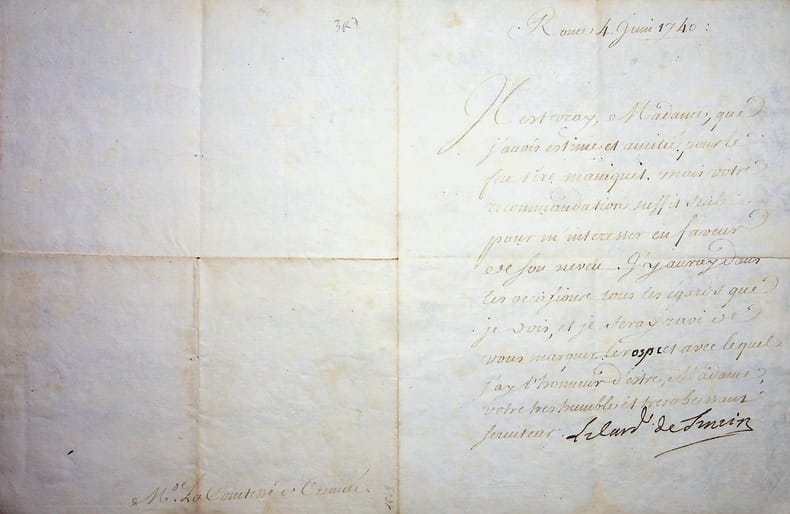 Rome 4. Juin 1740:
Il est vray, Madame, que
j'auois estime et amitié pour le
feu Pere maniquet. mais votre
recommandation suffit seule
pour m'interesser en faveur
de son neveu. J'y auray dans
les occasions tous les egards que
je dois, et je seray ravi de
vous marquer le respect avec lequel
j'ay l'honneur d'estre, Madame,
votre tres humble et tres obeissant
serviteur. Le Card. de
Me. La Comtesse de